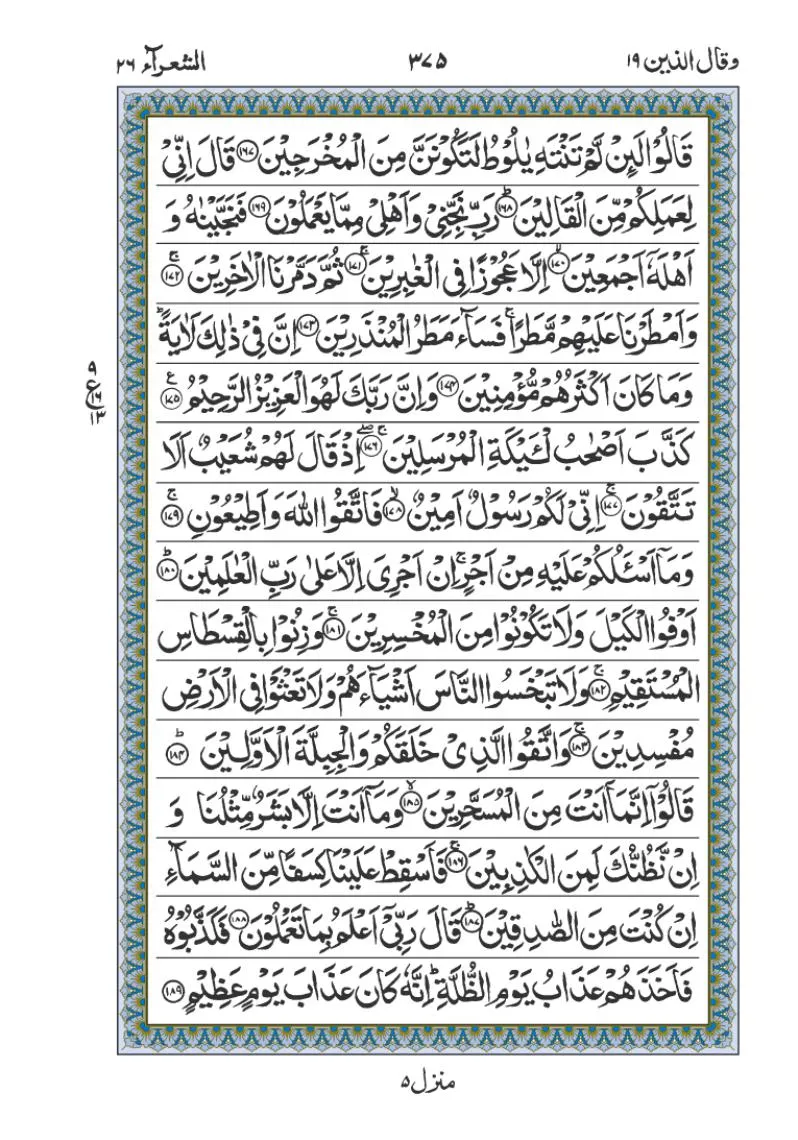 وقال الذین ۱۹
۳۷۵
الشعرآء ۲۶
قَالُوۡا لَئِنۡ لَّمۡ تَنۡتَهِ يٰلُوۡطُ لَتَكُوۡنَنَّ مِنَ الۡمُخۡرَجِيۡنَ ﴿۱۶۷﴾ قَالَ اِنِّىۡ
لِعَمَلِكُمۡ مِّنَ الۡقَالِيۡنَؕ ﴿۱۶۸﴾ رَبِّ نَجِّنِىۡ وَاَهۡلِىۡ مِمَّا يَعۡمَلُوۡنَ ﴿۱۶۹﴾ فَنَجَّيۡنٰهُ وَ
اَهۡلَهٗۤ اَجۡمَعِيۡنَۙ ﴿۱۷۰﴾ اِلَّا عَجُوۡزًا فِى الۡغٰبِرِيۡنَۚ ﴿۱۷۱﴾ ثُمَّ دَمَّرۡنَا الۡاٰخَرِيۡنَۚ ﴿۱۷۲﴾
وَاَمۡطَرۡنَا عَلَيۡهِمۡ مَّطَرًاۚ فَسَآءَ مَطَرُ الۡمُنۡذَرِيۡنَ ﴿۱۷۳﴾ اِنَّ فِىۡ ذٰلِكَ لَاٰيَةًؕ
وَمَا كَانَ اَكۡثَرُهُمۡ مُّؤۡمِنِيۡنَ ﴿۱۷۴﴾ وَاِنَّ رَبَّكَ لَهُوَ الۡعَزِيۡزُ الرَّحِيۡمُ ﴿۱۷۵﴾
۹
ع
۱۶
۱۳
كَذَّبَ اَصۡحٰبُ لْئَيۡكَةِ الۡمُرۡسَلِيۡنَ ۖۚ ﴿۱۷۶﴾ اِذۡ قَالَ لَهُمۡ شُعَيۡبٌ اَلَا
تَتَّقُوۡنَۚ ﴿۱۷۷﴾ اِنِّىۡ لَـكُمۡ رَسُوۡلٌ اَمِيۡنٌۙ ﴿۱۷۸﴾ فَاتَّقُوا اللّٰهَ وَاَطِيۡعُوۡنِۚ ﴿۱۷۹﴾
وَمَاۤ اَسۡـَٔـلُكُمۡ عَلَيۡهِ مِنۡ اَجۡرٍۚ اِنۡ اَجۡرِىَ اِلَّا عَلٰى رَبِّ الۡعٰلَمِيۡنَؕ ﴿۱۸۰﴾
اَوۡفُوا الۡـكَيۡلَ وَلَا تَكُوۡنُوۡا مِنَ الۡمُخۡسِرِيۡنَۚ ﴿۱۸۱﴾ وَزِنُوۡا بِالۡقِسۡطَاسِ
الۡمُسۡتَقِيۡمِۚ ﴿۱۸۲﴾ وَلَا تَبۡخَسُوا النَّاسَ اَشۡيَآءَهُمۡ وَلَا تَعۡثَوۡا فِى الۡاَرۡضِ
مُفۡسِدِيۡنَۚ ﴿۱۸۳﴾ وَاتَّقُوا الَّذِىۡ خَلَقَكُمۡ وَالۡجِـبِلَّةَ الۡاَوَّلِيۡنَؕ ﴿۱۸۴﴾
قَالُوۡۤا اِنَّمَاۤ اَنۡتَ مِنَ الۡمُسَحَّرِيۡنَۙ ﴿۱۸۵﴾ وَمَاۤ اَنۡتَ اِلَّا بَشَرٌ مِّثۡلُـنَا وَ
اِنۡ نَّظُنُّكَ لَمِنَ الۡكٰذِبِيۡنَۚ ﴿۱۸۶﴾ فَاَسۡقِطۡ عَلَيۡنَا كِسَفًا مِّنَ السَّمَآءِ
اِنۡ كُنۡتَ مِنَ الصّٰدِقِيۡنَؕ ﴿۱۸۷﴾ قَالَ رَبِّىۡۤ اَعۡلَمُ بِمَا تَعۡمَلُوۡنَ ﴿۱۸۸﴾ فَكَذَّبُوۡهُ
فَاَخَذَهُمۡ عَذَابُ يَوۡمِ الظُّلَّةِؕ اِنَّهٗ كَانَ عَذَابَ يَوۡمٍ عَظِيۡمٍ ﴿۱۸۹﴾
منزل ۵